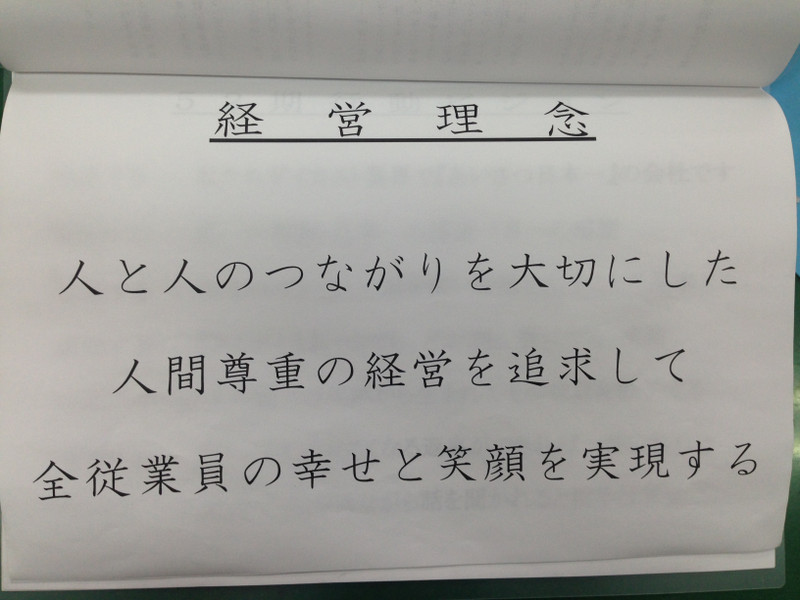 経営理念
人と人のつながりを大切にした
人間尊重の経営を追求して
全従業員の幸せと笑顔を実現する